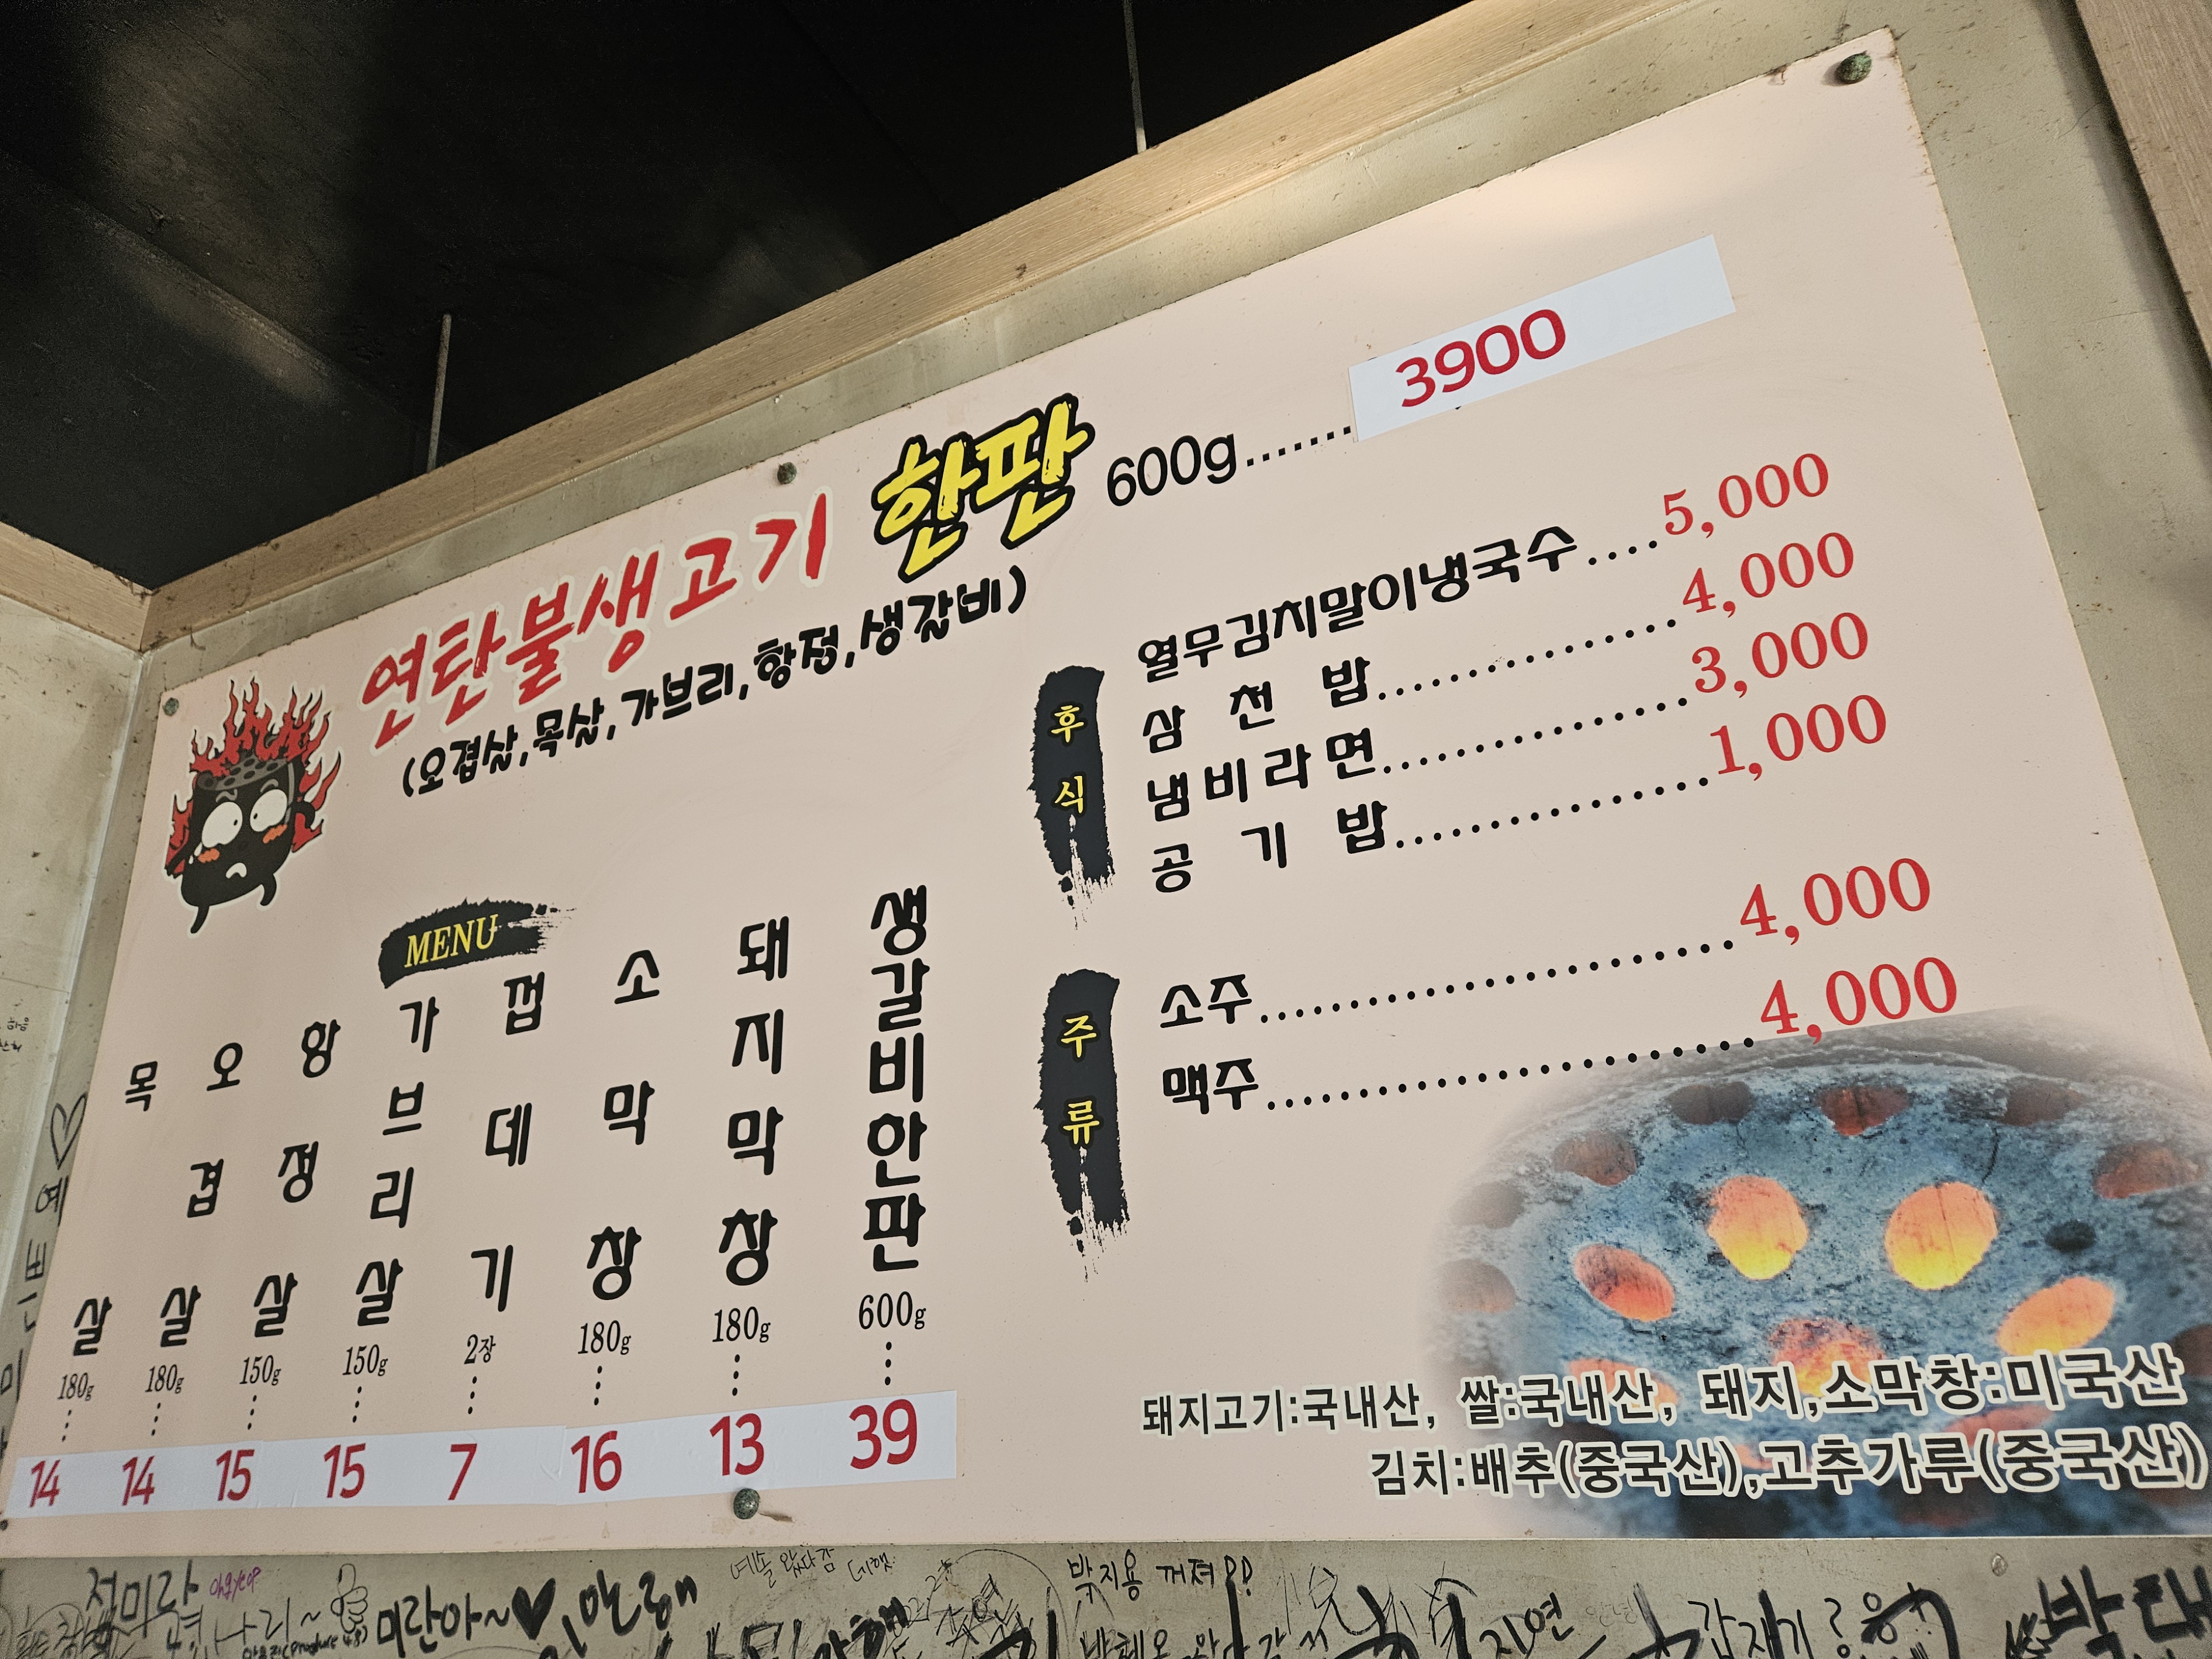 연탄불생고기 한판 600g.......3900
(오겹살,목살,가브리,항정,생갈비)
MENU
목살 180g 14
오겹살 180g 14
항정살 150g 15
가브리살 150g 15
껍데기 2장 7
소막창 180g 16
돼지막창 180g 13
생갈비한판 600g 39
후식
열무김치말이냉국수....5,000
삼천밥................4,000
냄비라면................3,000
공기밥................1,000
주류
소주........................4,000
맥주........................4,000
돼지고기:국내산, 쌀:국내산, 돼지,소막창:미국산
김치:배추(중국산),고추가루(중국산)
정미라
미란아~♥
박지용 꺼져!!
지연